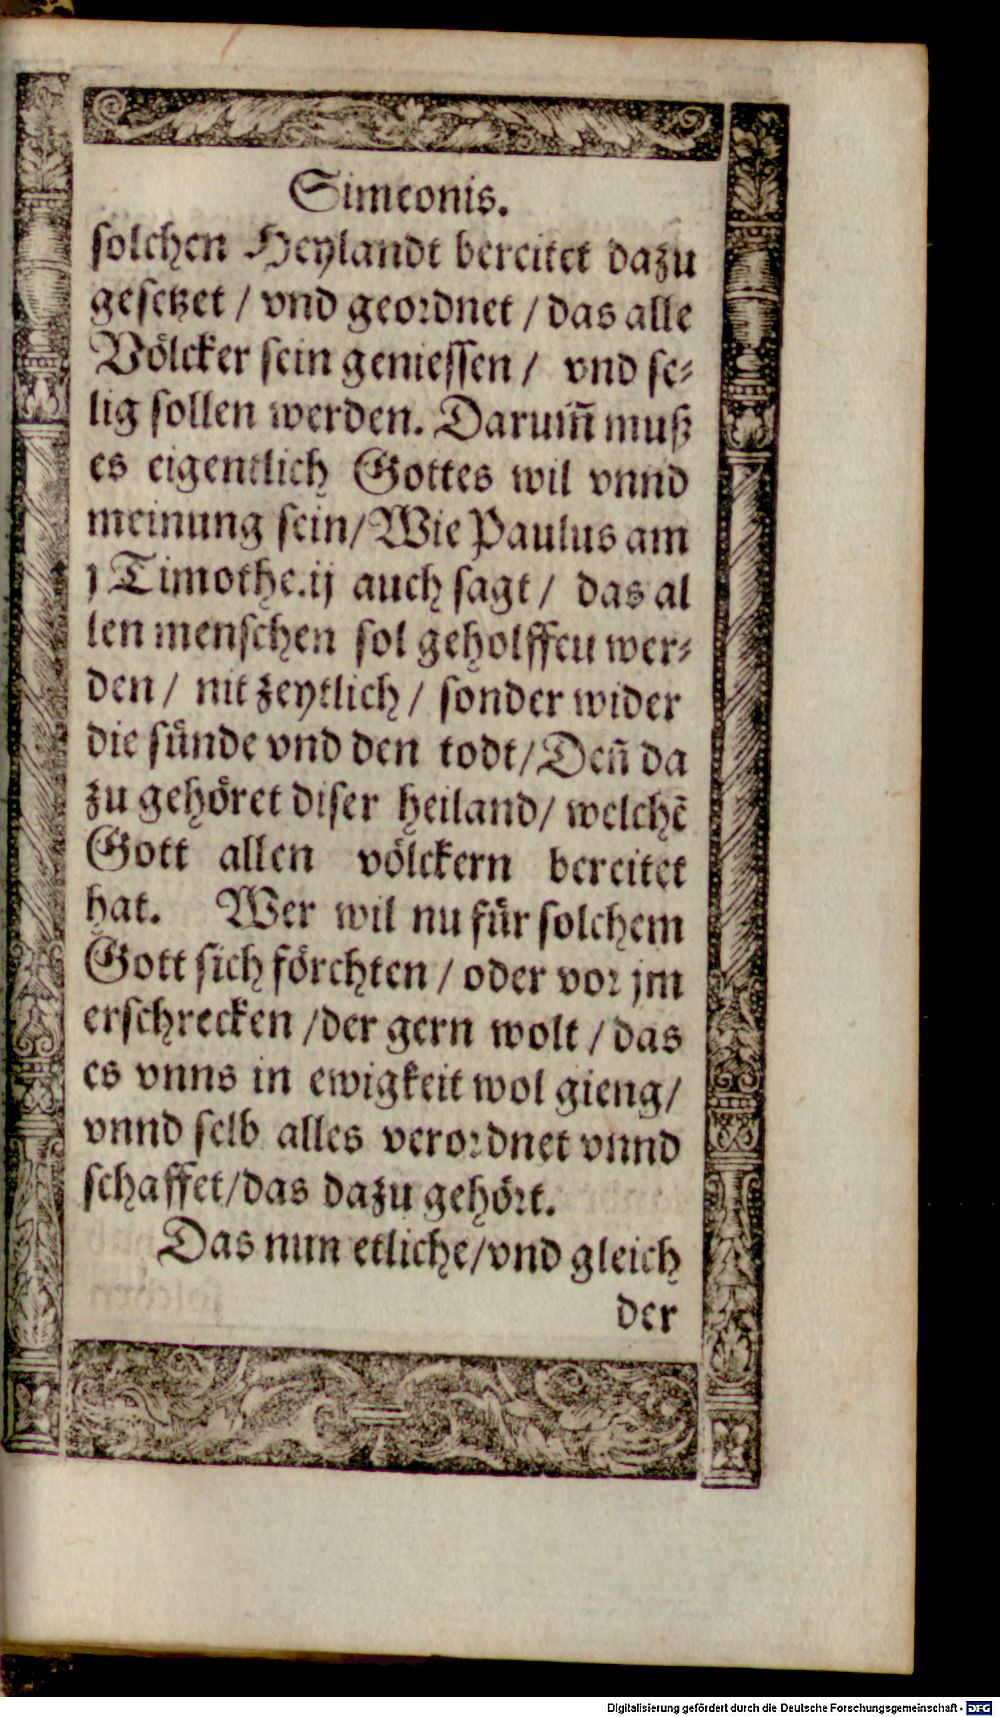 Simeonis.
solchen Heylandt bereitet dazu
gesetzet / vnd geordnet / das alle
Völcker sein geniessen / vnd se⸗
lig sollen werden. Darum̃ muß
es eigentlich Gottes wil vnnd
meinung sein/Wie Paulus am
j Timothe.ij auch sagt / das al
len menschen sol geholffeu wer⸗
den / nit zeytlich / sonder wider
die sünde vnd den todt/Deñ da
zu gehöret diser heiland/ welchẽ
Gott allen völckern bereitet
hat. Wer wil nu für solchem
Gott sich förchten / oder vor jm
erschrecken /der gern wolt / das
es vnns in ewigkeit wol gieng/
vnnd selb alles verordnet vnnd
schaffet/das dazu gehört.
Das nun etliche/vnd gleich
der
Digitalisierung gefördert durch die Deutsche Forschungsgemeinschaft - DFG